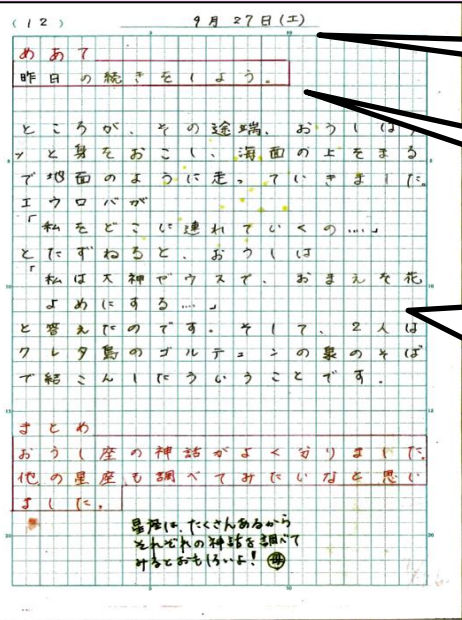 (12) 9月27日(土)
めあて
昨日の続きをしよう。
ところが、その途端、おうしはす
ッと身をおこし、海面の上をまる
で地面のように走っていきました。
エウロパが
「私をどこに連れていくの…」
とたずねると、おうしは
「私は大神ゼウスで、おまえを花
よめにする…」
と答えたのです。そして、2人は
クレタ島のゴルテュンの泉のそば
で結こんしたういうことです。
まとめ
おうし座の神話がよく分りました。
他の星座も調べてみたいなと思い
ました。
星座は、たくさんあるから
それぞれの神話を調べて
みるとおもしろいよ! 母